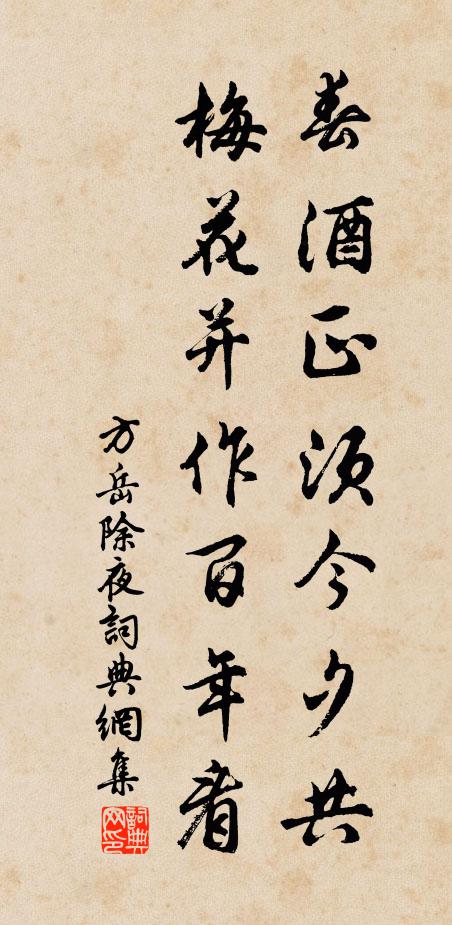 春酒正须今夕共
梅花并作百年看
方岳除夜詞典網集
詞典網印